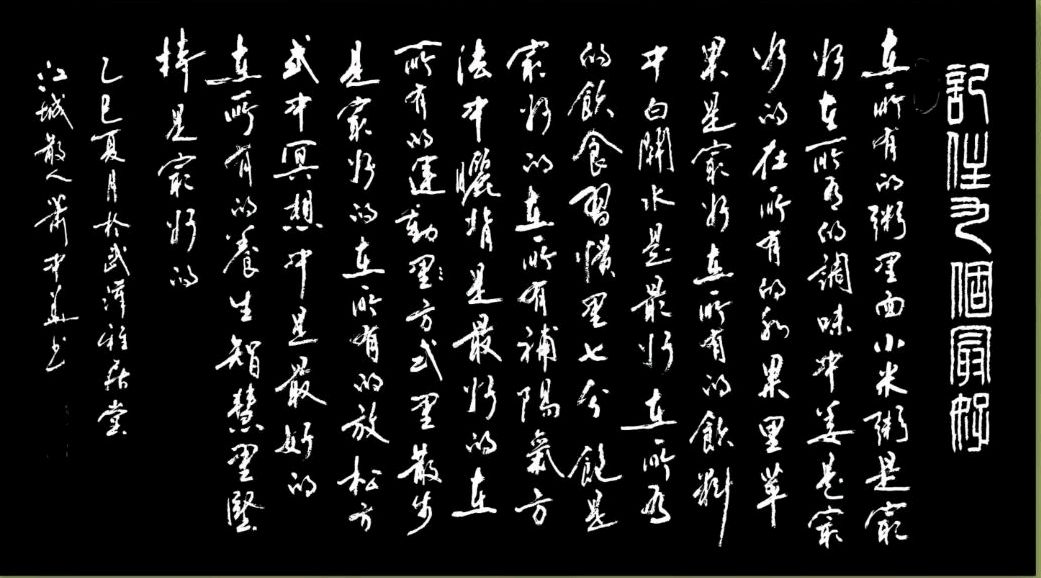 記住九個最好
在所有的粥里面小米粥是最
好在所有的調味中姜是最
好的在所有的水果里苹
果是最好在所有的飲料
中白開水是最好在所有
的飲食習慣里七分飽是
最好的在所有補陽氣方
法中曬背是最好的在
所有的運動里方式里散步
是最好的在所有的放松方
式中冥想中是最好的
在所有的養生智慧里堅
持是最好的
乙巳夏月於武漢雅居堂
江城散人蕭中书